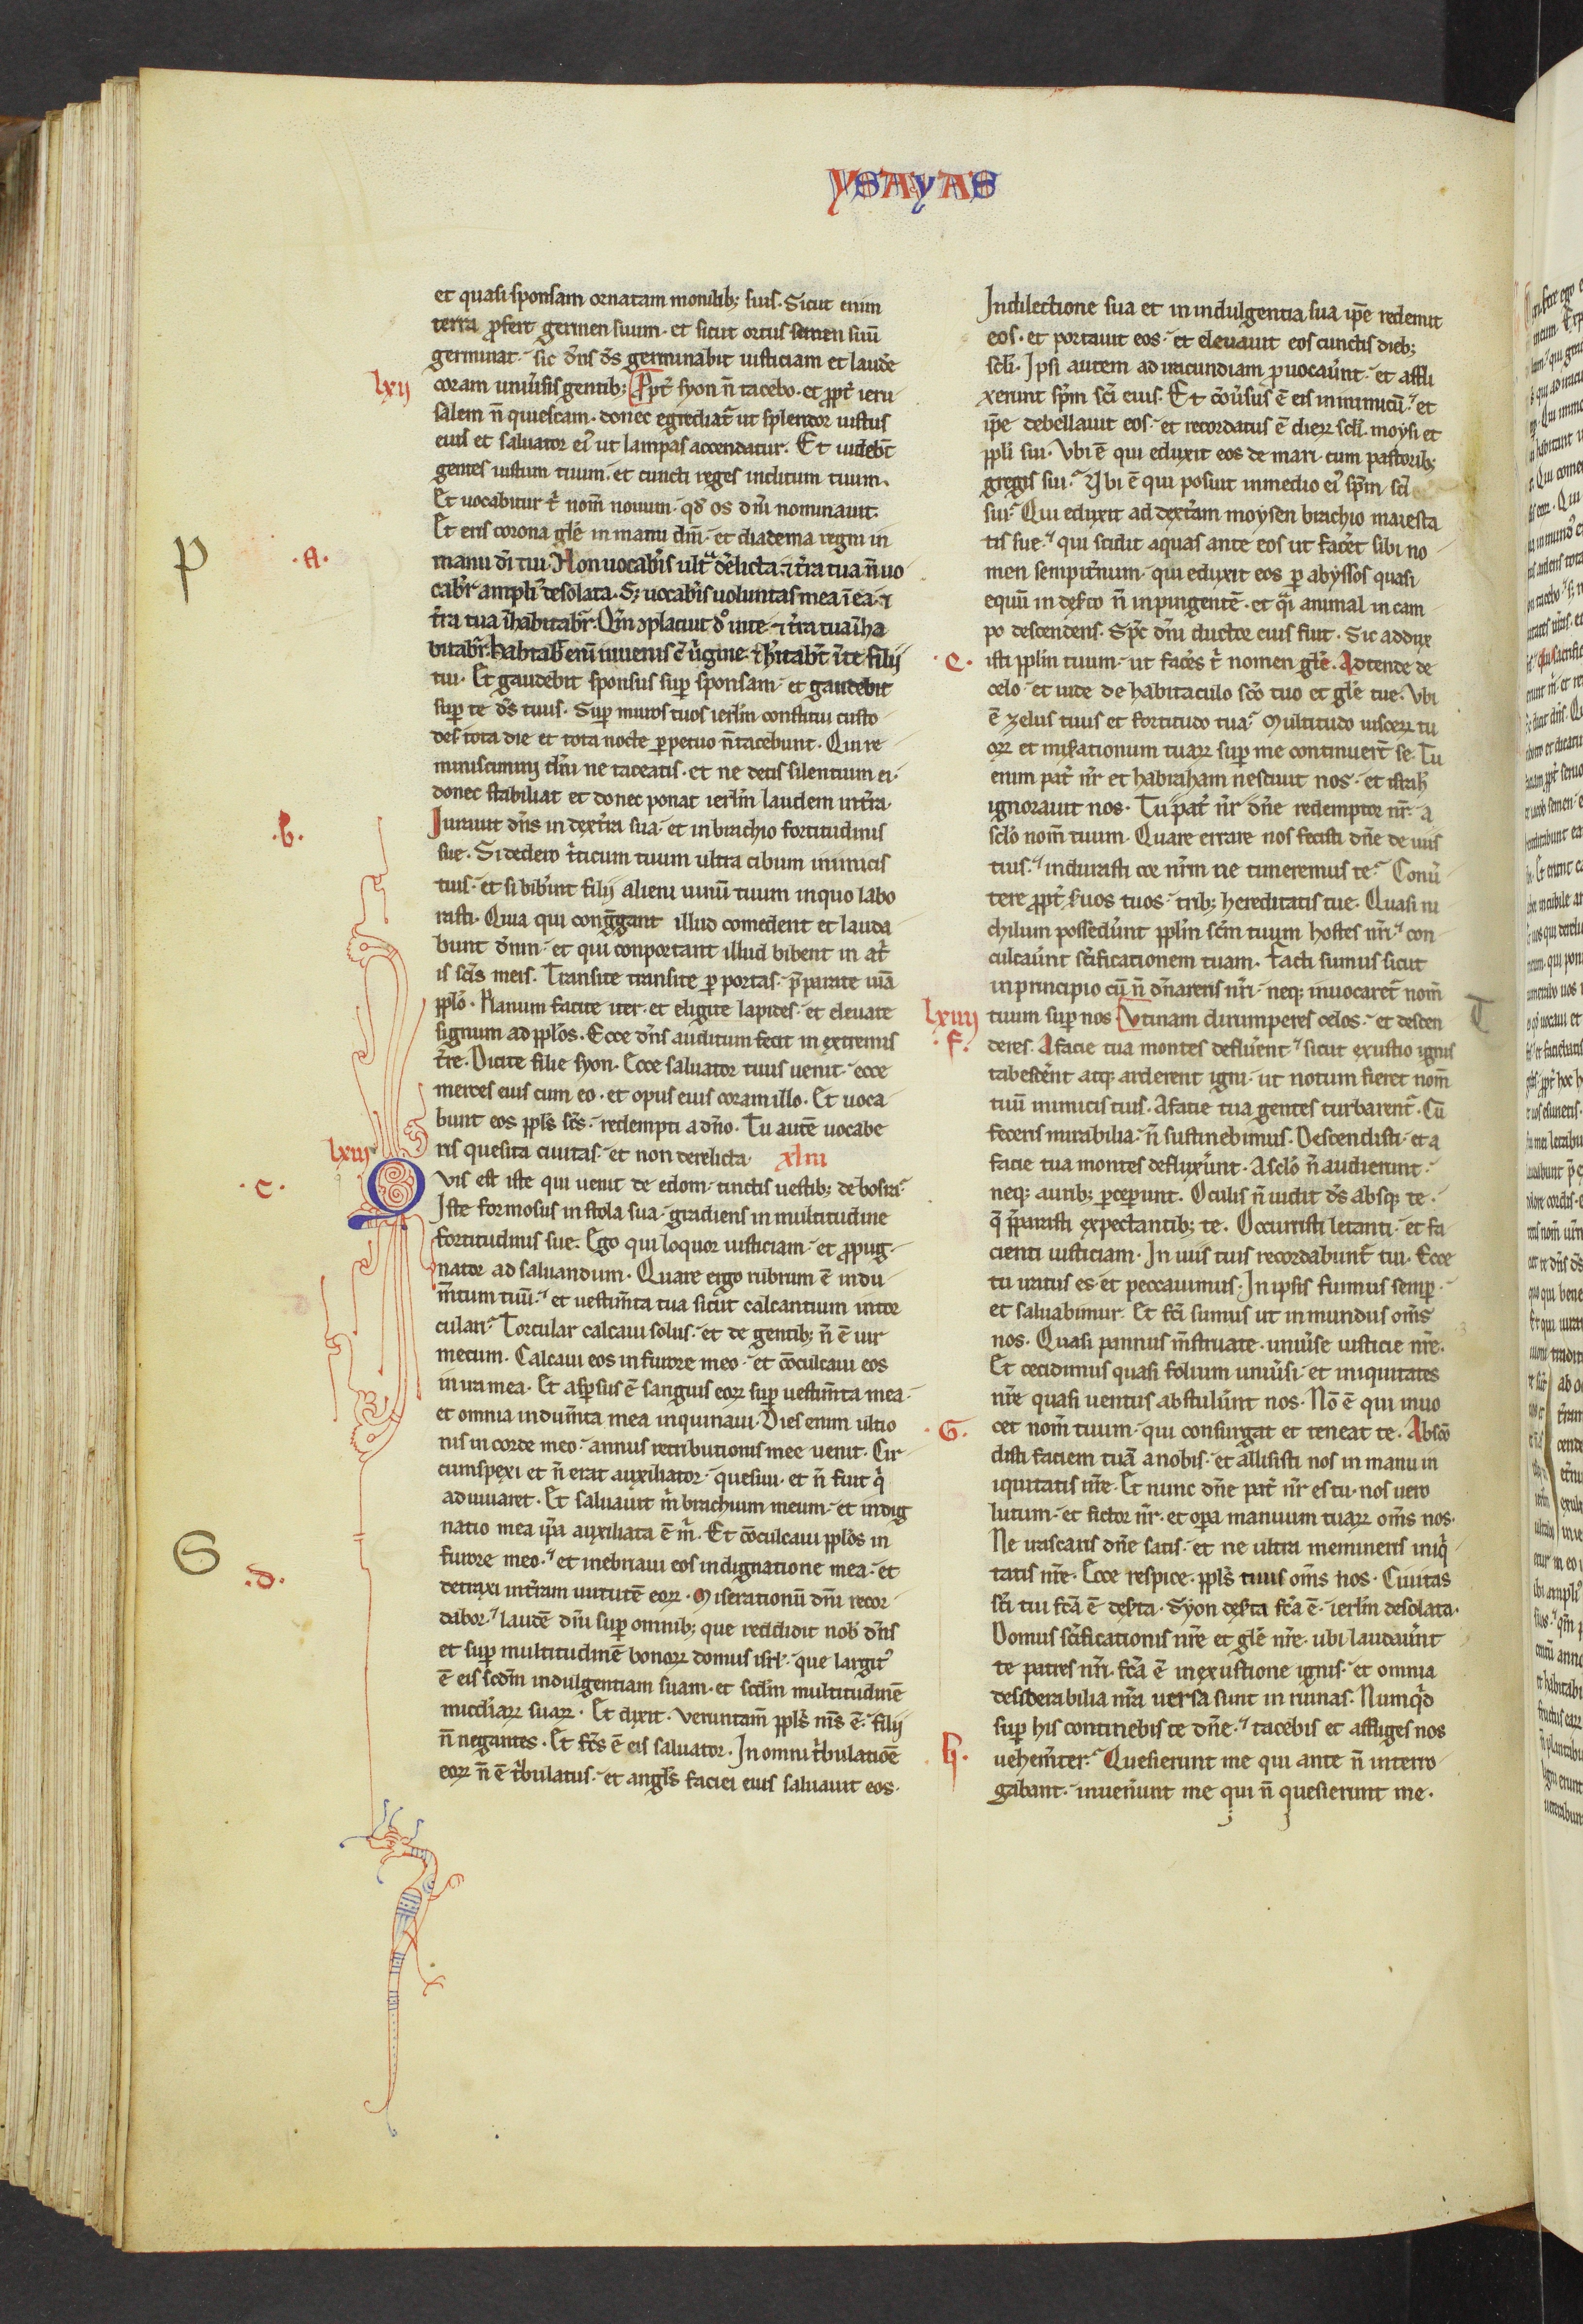 YSAYAS
et quasi sponsam ornatam monilib; suis. Sicut enim
terra ꝓfert germen suum. et sicut ortus semen suū
germinat. sic dn̄s ds̄ germinabit iusticiam et laudē
lxii
coram uniu̾sis gentib; Ꝓpt̾ syon n̄ tacebo. et ꝓpt̾ ieru
salem n̄ quiescam. donec egrediat̾ ut splendor iustus
eius et saluator ei᾿ ut lampas accendatur. Et uidebt̄
gentes iustum tuum. et cuncti reges inclitum tuum.
Et uocabitur t̾ nom̄ nouum. qd̄ os dn̄i nominauit.
Et eris corona glē in manu dn̄i. et diadema regni in
P
.A.
manu dī tui. Non uocabis̾ ultᵃ d̾elicta. ⁊ t̾ra tua n̄ uo
cabit̾ ampli᾿ desolata. S; uocab̾is uoluntas mea ī ea. ⁊
t̾ra tua īhabitabit̾. Qm̄ ꝯplacuit dn̄o in te. ⁊ t̾ra tua īha
bitabit̾. Habitabit eni᷎ iuuenis cū u̾gine. ⁊ h̾itabt̄ ī te filii
tui. Et gaudebit sponsus sup̱ sponsam. et gaudebit
sup̱ te ds̄ tuus. Sup̱ muros tuos ierlm̄ constitui custo
des. tota die et tota nocte ꝑpetuo n̄ tacebunt. Qui re
miniscimini dn̄i ne taceatis. et ne detis silentium ei.
donec stabiliat et donec ponat ierlm̄ laudem int̾ra.
.b.
Iurauit dn̄s in dext̾ra sua. et in brachio fortitudinis
sue. Si dedero t̾ticum tuum ultra cibum inimicis
tuis. et si bibe̾rint filij alieni uinū tuum in quo labo
rasti. Quia qui cong̾gant illud comedent et lauda
bunt dn̄m. et qui conportant illud bibent in at̾
is sc̄is meis. Transite transite ꝑ portas. p̄parate uiā
ppl̄o. Planum facite iter. et eligite lapides. et eleuate
signum ad ppl̄os. Ecce dn̄s auditum fecit in extremis
t̾re. Dicite filie syon. Ecce saluator tuus uenit. ecce
merces eius cum eo. et opus eius coram illo. Et uoca
bunt eos ppl̄s sc̄s. redempti a dn̄o. Tu autē uocabe
lxiii
ris quesita ciuitas. et non derelicta. xliii
.c.
Qvis est iste qui uenit de edom. tinctis uestib; de bosra?
Iste formosus in stola sua. gradiens in multitudine
fortitudinis sue. Ego qui loquor iusticiam. et ꝓpug
nator ad saluandum. Quare ergo rubrum ē indu
m̄tum tuū? et uestim̄ta tua sicut calcantium in tor
culari? Torcular calcaui solus. et de gentib; n̄ ē uir
mecum. Calcaui eos in furore meo. et cōculcaui eos
in ira mea. Et asp̱sus ē sanguis eoꝝ sup̱ uestim̄ta mea.
et omnia indum̄ta mea inquinaui. Dies enim ultio
nis in corde meo. annus retributionis mee uenit. Cir
cumspexi et n̄ erat auxiliator. quesiui. et n̄ fuit q̾
adiuuaret. Et saluauit m̾ brachium meum. et indig
natio mea ip̄a auxiliata ē m̾. Et cōculcaui ppl̄os in
S
.d.
furore meo. et inebriaui eos indignatione mea. et
detraxi int̾ram uirtutē eoꝝ. Miserationū dn̄i recor
dabor. laudē dn̄i sup̱ omnib; que reddidit nob̾ dn̄s
et sup̱ multitudinē bonoꝝ domus isrl̄. que largit᾿
ē eis scdm̄ indulgentiam suam. et scdm̄ multitudinē
mic̾diaꝝ suaꝝ. Et dixit. ueruntam̄ ppl̄s ms̄ ē. filij
n̄ negantes. Et fc̄s ē eis saluator. In omni t̾bulatiōe
eoꝝ n̄ ē t̾bulatus. et angl̄s faciei eius saluauit eos.
In dilectione sua et in indulgentia sua ip̄e redemit
eos. et portauit eos. et eleuauit eos cunctis dieb;
scl̄i. Ipsi autem ad iracundiam ꝓuocaue̾rnt. et affli
xerunt sp̄m sc̄i eius. Et cōu̾sus ē eis in inimicū. et
ip̄e debellauit eos. et recordatus ē dieꝝ scl̄i. moysi et
ppl̄i sui. Vbi ē qui eduxit eos de mari. cum pastorib;
gregis sui? Vbi ē qui posuit in medio ei᾿ sp̄m sc̄i
sui? Qui eduxit ad dext̾am moysen brachio maiesta
tis sue. qui scidit aquas ante eos ut fac̾et sibi no
men sempit̾num. qui eduxit eos ꝑ abyssos quasi
equū in des̾to n̄ inpingentē. et q̾si animal in cam
po descendens. Sp̄c dn̄i ductor eius fuit. Sic addux
.e.
isti ppl̄m tuum. ut fac̾es t̾ nomen glē. Adtende de
celo. et uide de habitaculo sc̄o tuo et glē tue. Vbi
ē zelus tuus et fortitudo tua? Multitudo uisceꝝ tu
oꝝ et mis̾ationum tuaꝝ sup̱ me continuert̄ se. Tu
enim pat̾ nr̄ et habraham nesciuit nos. et isrl̄
ignorauit nos. Tu pat̾ nr̄ dn̄e redemptor nr̄. a
scl̄o nom̄ tuum. Quare errare nos fecisti dn̄e de uiis
tuis? indurasti cor nr̄m ne timeremus te? Conu̾
tere ꝓpt̾ seruos tuos. trib; hereditatis tue. Quasi ni
chilum posseder̾unt ppl̄m sc̄m tuum hostes nr̄i. con
culcaue̾rnt sc̄ificationem tuam. Facti sumus sicut
in principio cū n̄ dn̄areris nr̄i. neq; inuocaret̄ nom̄
lxiiii
tuum sup̱ nos Vtinam dirumperes celos. et descen
T
.f.
deres. A facie tua montes deflue̾rent. sicut exustio ignis
tabesce̾rnt atq; arderent igni. ut notum fieret nom̄
tuū inimicis tuis. A facie tua gentes turbarent̾. Cū
feceris mirabilia. n̄ sustinebimus. Descendisti. et a
facie tua montes deflux̾unt. A scl̄o n̄ audierunt.
neq; aurib; ꝑceperunt. Oculis n̄ uidit ds̄ absq; te.
q̄ p̄parasti expectantib; te. Occurristi letanti. et fa
cienti iusticiam. In uiis tuis recordabunt̾ tui. Ecce
tu iratus es. et peccauimus. In ipsis fuimus semp̱.
et saluabimur. Et fc̄i sumus ut inmundus om̄s
nos. Quasi pannus m̄struate. uniu̾se iusticie nr̄e.
Et cecidimus quasi folium uniu̾si. et iniquitates
nr̄e quasi uentus abstule̾rnt nos. Nō ē qui inuo
.G.
cet nom̄ tuum. qui consurgat et teneat te. Abscō
disti faciem tuā a nobis. et allisisti nos in manu in
iquitatis nr̄e. Et nunc dn̄e pat̾ nr̄ es tu. nos uero
lutum. et fictor nr̄. et opa̱ manuum tuaꝝ om̄s nos.
Ne irascaris dn̄e satis. et ne ultra memineris iniq̾
tatis nr̄e. Ecce respice. ppl̄s tuus om̄s nos. Ciuitas
sc̄i tui fc̄a ē des̾ta. Syon des̾ta fc̄a ē. ierlm̄ desolata.
Domus sc̄ificationis nr̄e et glē nr̄e. ubi laudaue̾rnt
te patres nr̄i. fc̄a ē in exustione ignis. et omnia
desiderabilia nr̄a uersa sunt in ruinas. Numq̾d
sup̱ his continebis te dn̄e. tacebis et affliges nos
.h.
uehem̄ter? Quesierunt me qui ante n̄ interro
gabant. inuener̾unt me qui n̄ quesierunt me.